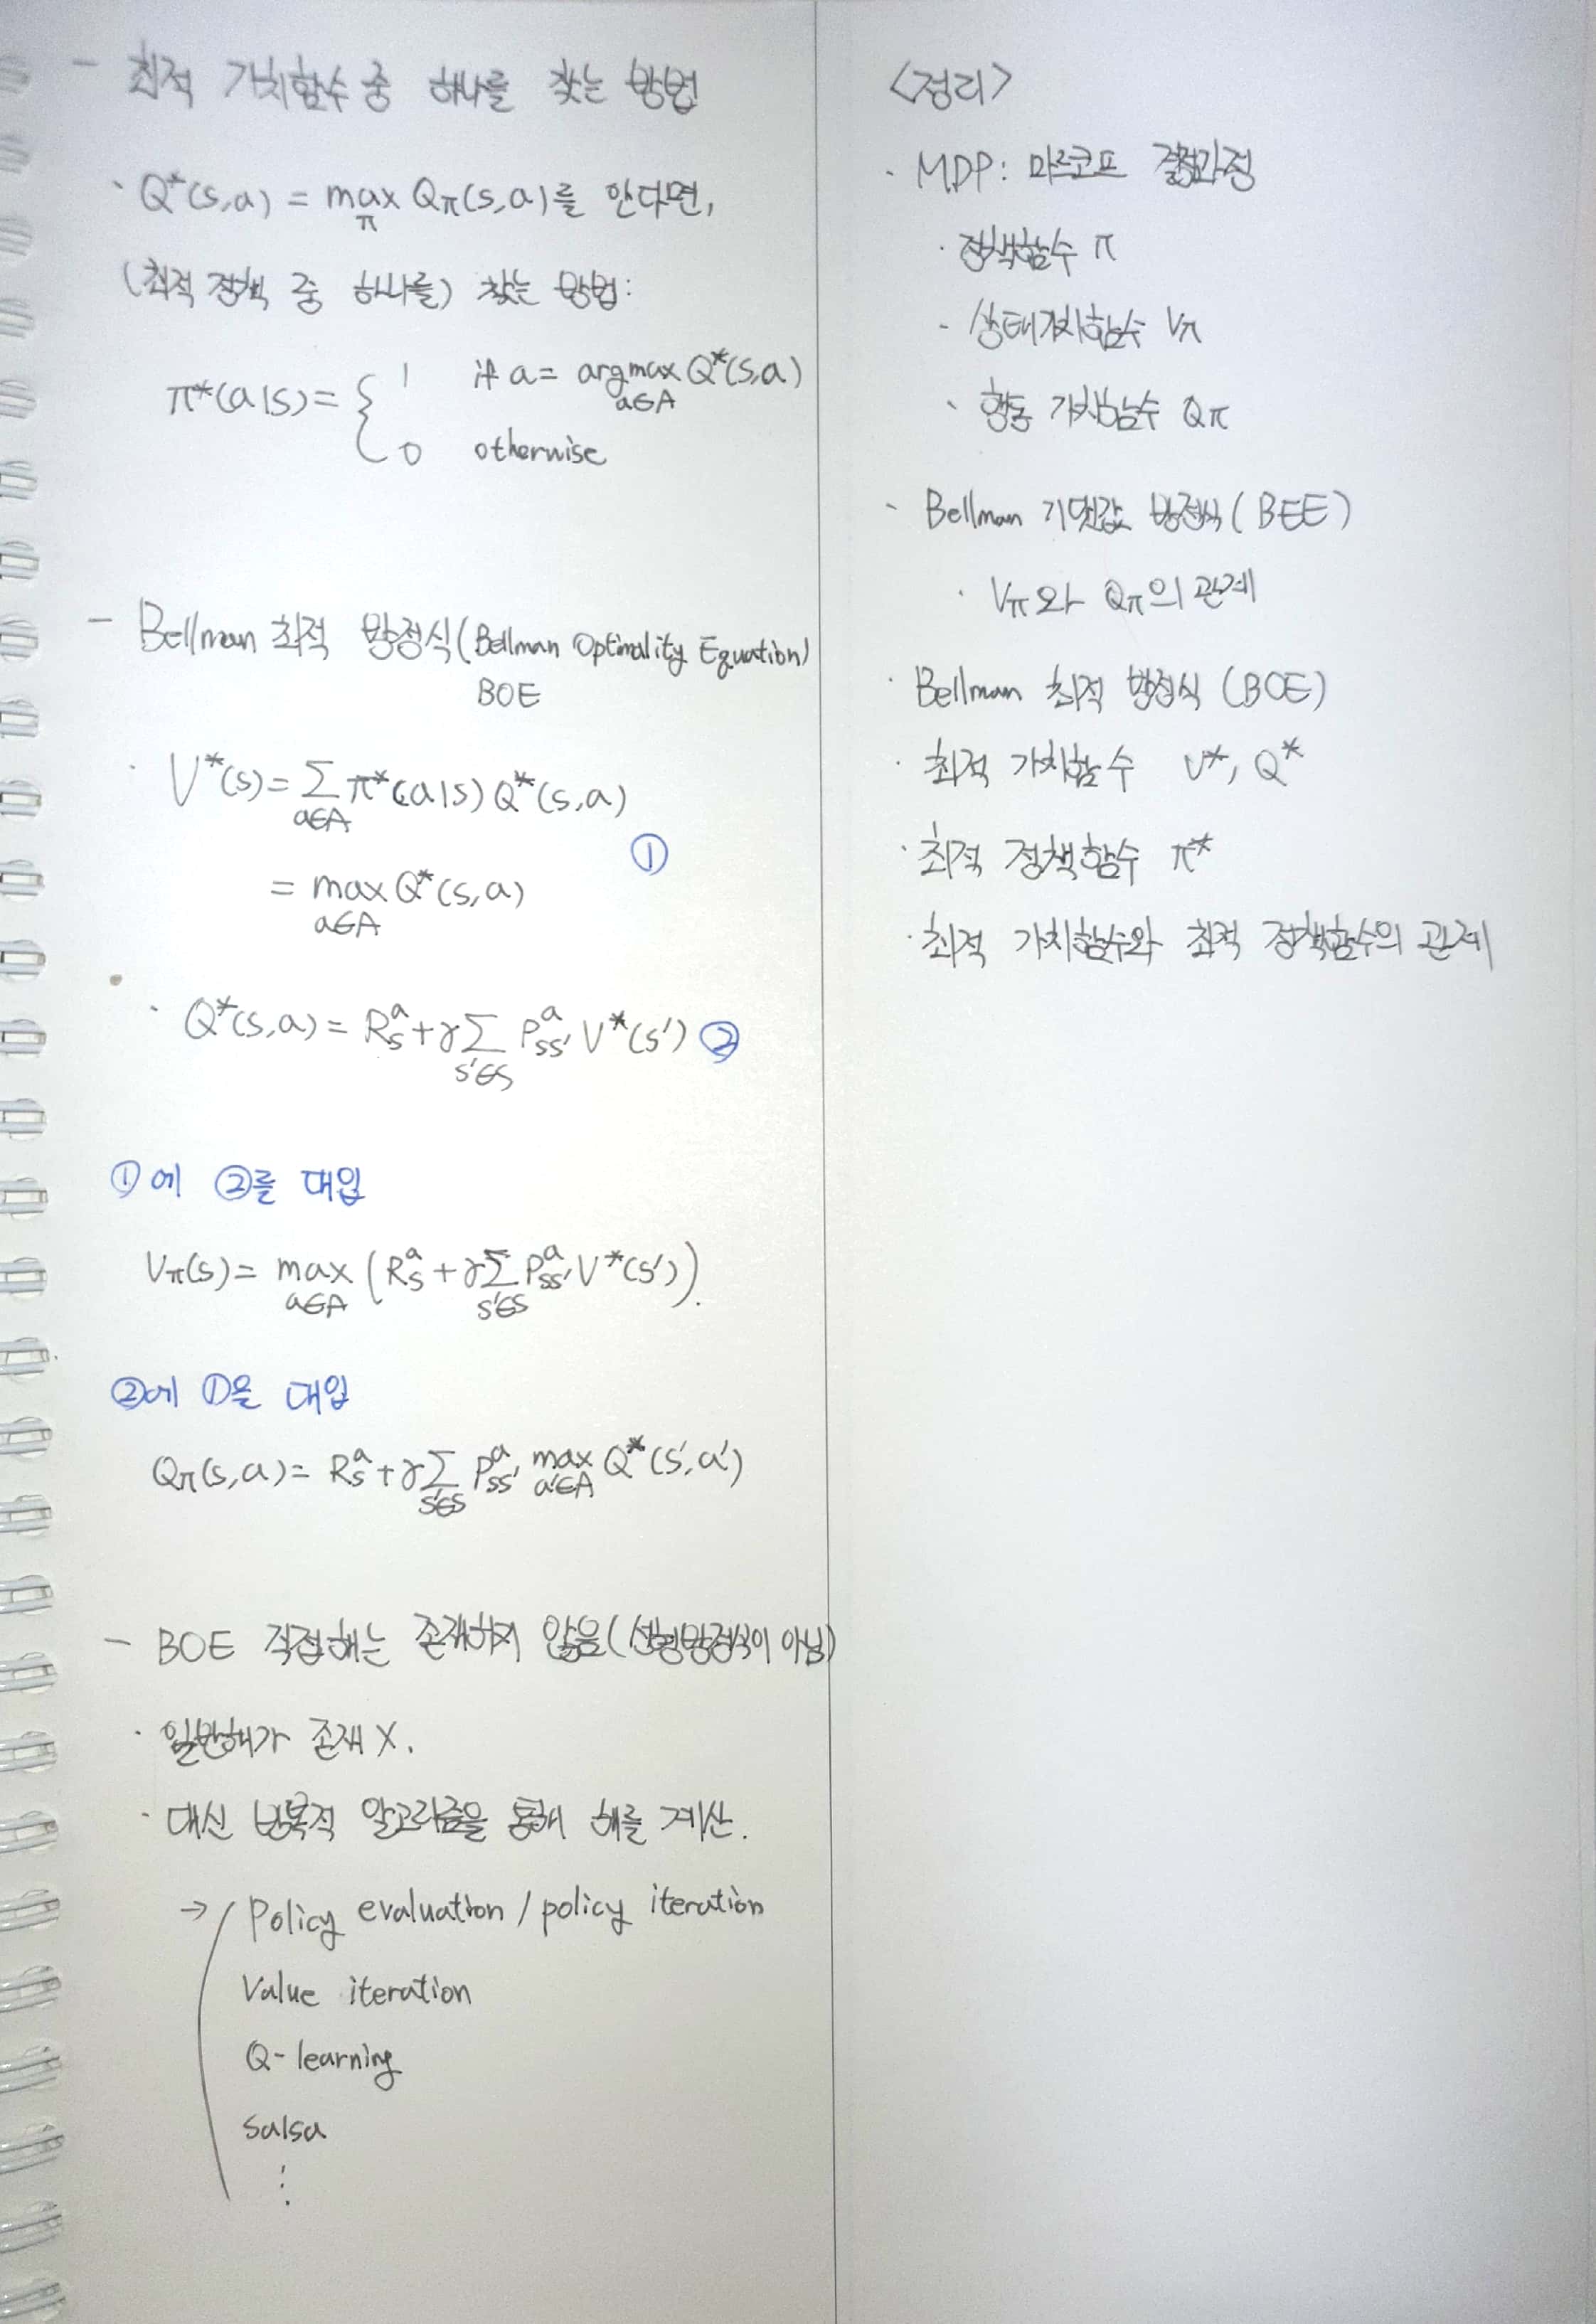 - 최적 가치함수 중 하나를 찾는 방법
· Q*(s,a) = max Qπ(s,a)를 안다면,
π
(최적 정책 중 하나를) 찾는 방법:
π*(a|s) = { 1 if a = argmax Q*(s,a)
a∈A
0 otherwise
- Bellman 최적 방정식(Bellman Optimality Equation)
BOE
· V*(s) = Σ π*(a|s) Q*(s,a)
a∈A
①
= max Q*(s,a)
a∈A
· Q*(s,a) = R_s^a + γ Σ P_ss'^a V*(s') ②
s'∈S
①에 ②를 대입
Vπ(s) = max (R_s^a + γ Σ P_ss'^a V*(s')).
a∈A s'∈S
②에 ①을 대입
Qπ(s,a) = R_s^a + γ Σ P_ss'^a max Q*(s',a')
s'∈S a'∈A
- BOE 직접해는 존재하지 않음(선형방정식이 아님)
· 일반해가 존재 X.
· 대신 반복적 알고리즘을 통해 해를 계산.
→ ( Policy evaluation / policy iteration
Value iteration
Q-learning
Salsa
⋮
<정리>
· MDP: 마르코프 결정과정
· 정책함수 π
- 상태가치함수 Vπ
· 행동 가치함수 Qπ
- Bellman 기댓값 방정식(BEE)
· Vπ와 Qπ의 관계
· Bellman 최적 방정식 (BOE)
· 최적 가치함수 V*, Q*
· 최적 정책함수 π*
· 최적 가치함수와 최적 정책함수의 관계